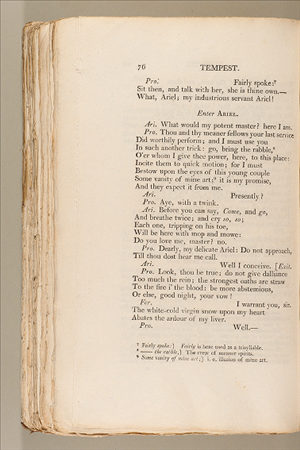 76 TEMPEST.
Pro. Fairly spoke:⁷
Sit then, and talk with her, she is thine own.—
What, Ariel; my industrious servant Ariel!
Enter ARIEL.
Ari. What would my potent master? here I am.
Pro. Thou and thy meaner fellows your last service
Did worthily perform; and I must use you
In such another trick: go, bring the rabble,⁸
O'er whom I give thee power, here, to this place:
Incite them to quick motion; for I must
Bestow upon the eyes of this young couple
Some vanity of mine art;⁹ it is my promise,
And they expect it from me.
Ari. Presently?
Pro. Aye, with a twink.
Ari. Before you can say, Come, and go,
And breathe twice; and cry so, so;
Each one, tripping on his toe,
Will be here with mop and mowe:
Do you love me, master? no.
Pro. Dearly, my delicate Ariel: Do not approach,
Till thou dost hear me call.
Ari. Well I conceive. [Exit.
Pro. Look, thou be true; do not give dalliance
Too much the rein; the strongest oaths are straw
To the fire i' the blood: be more abstemious,
Or else, good night, your vow!
Fer. I warrant you, sir.
The white-cold virgin snow upon my heart
Abates the ardour of my liver.
Pro. Well.—
⁷ Fairly spoke:] Fairly is here used as a trisyllable.
⁸ —— the rabble,] The crew of meaner spirits.
⁹ Some vanity of mine art;] i. e. illusion of mine art.